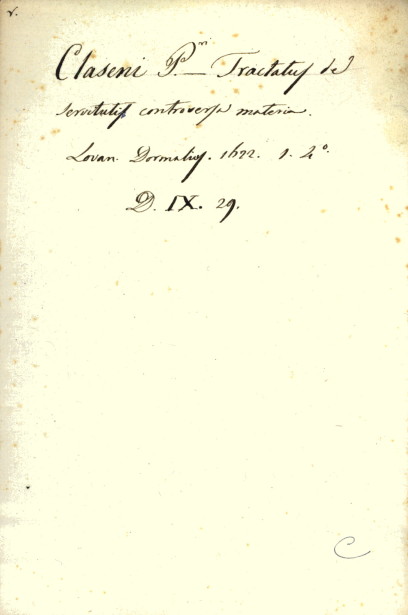 r.
Claseni P.ri — Tractatus de
servitutis controversa materia.
Lovan. Dormalius. 1622. 1. 4º.
D. IX. 29.
C